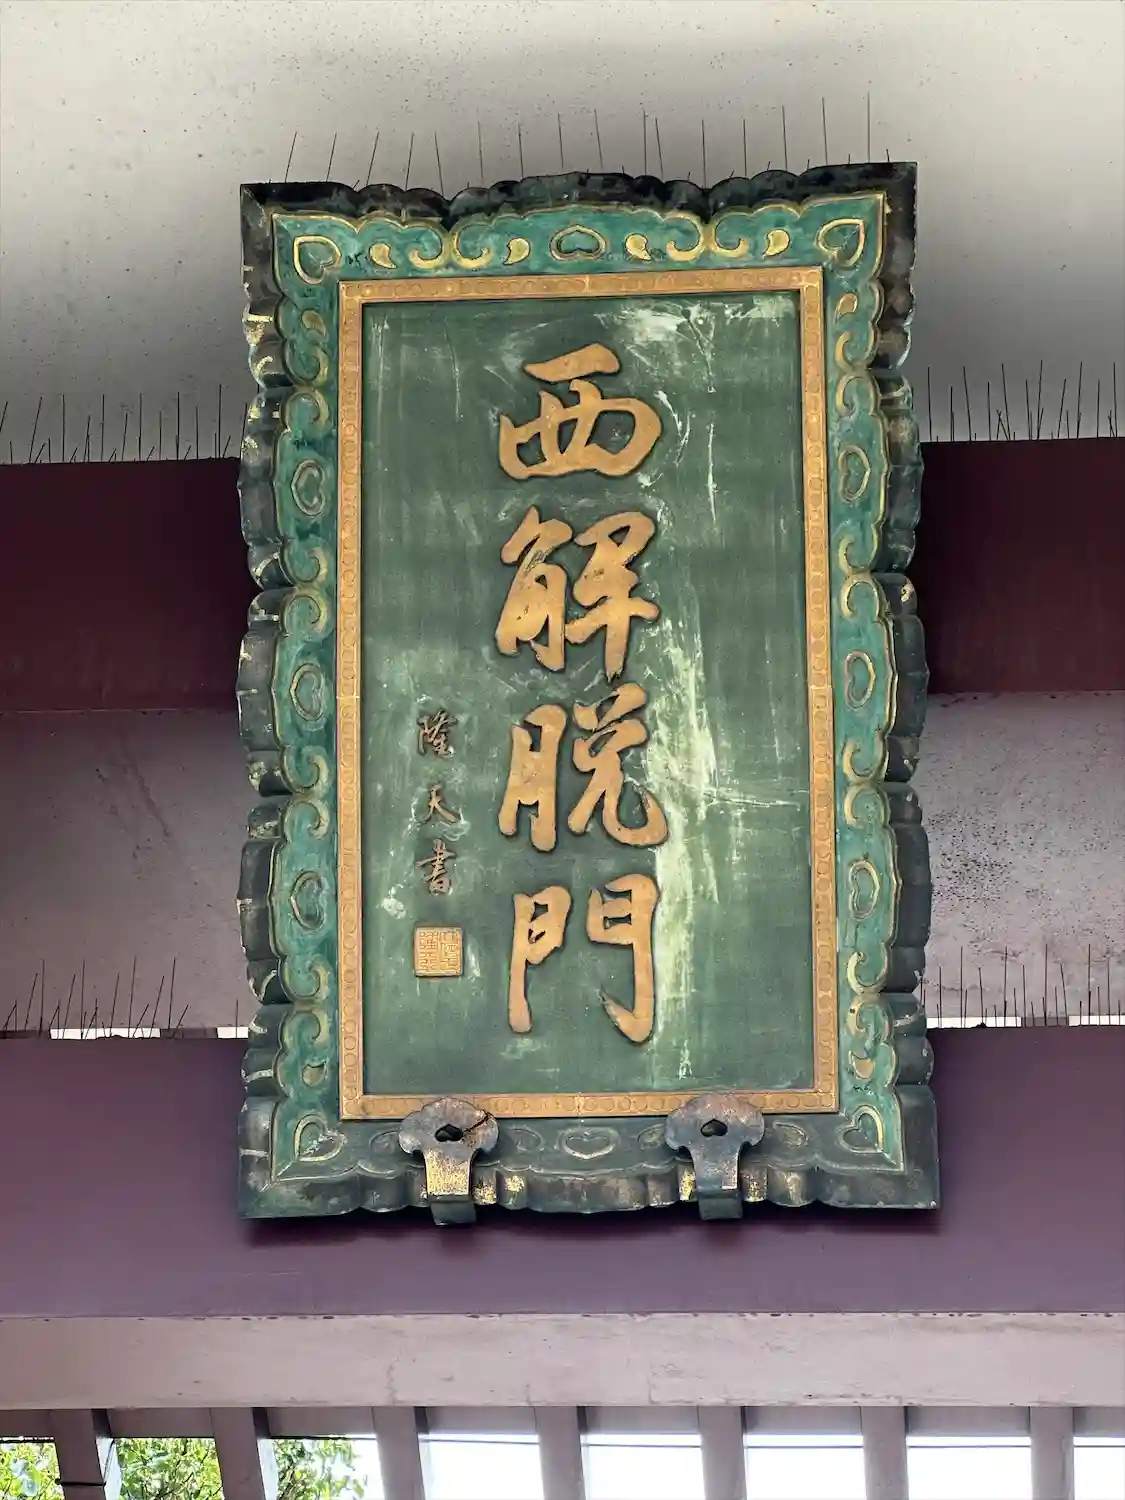 西解脱門
隆天書